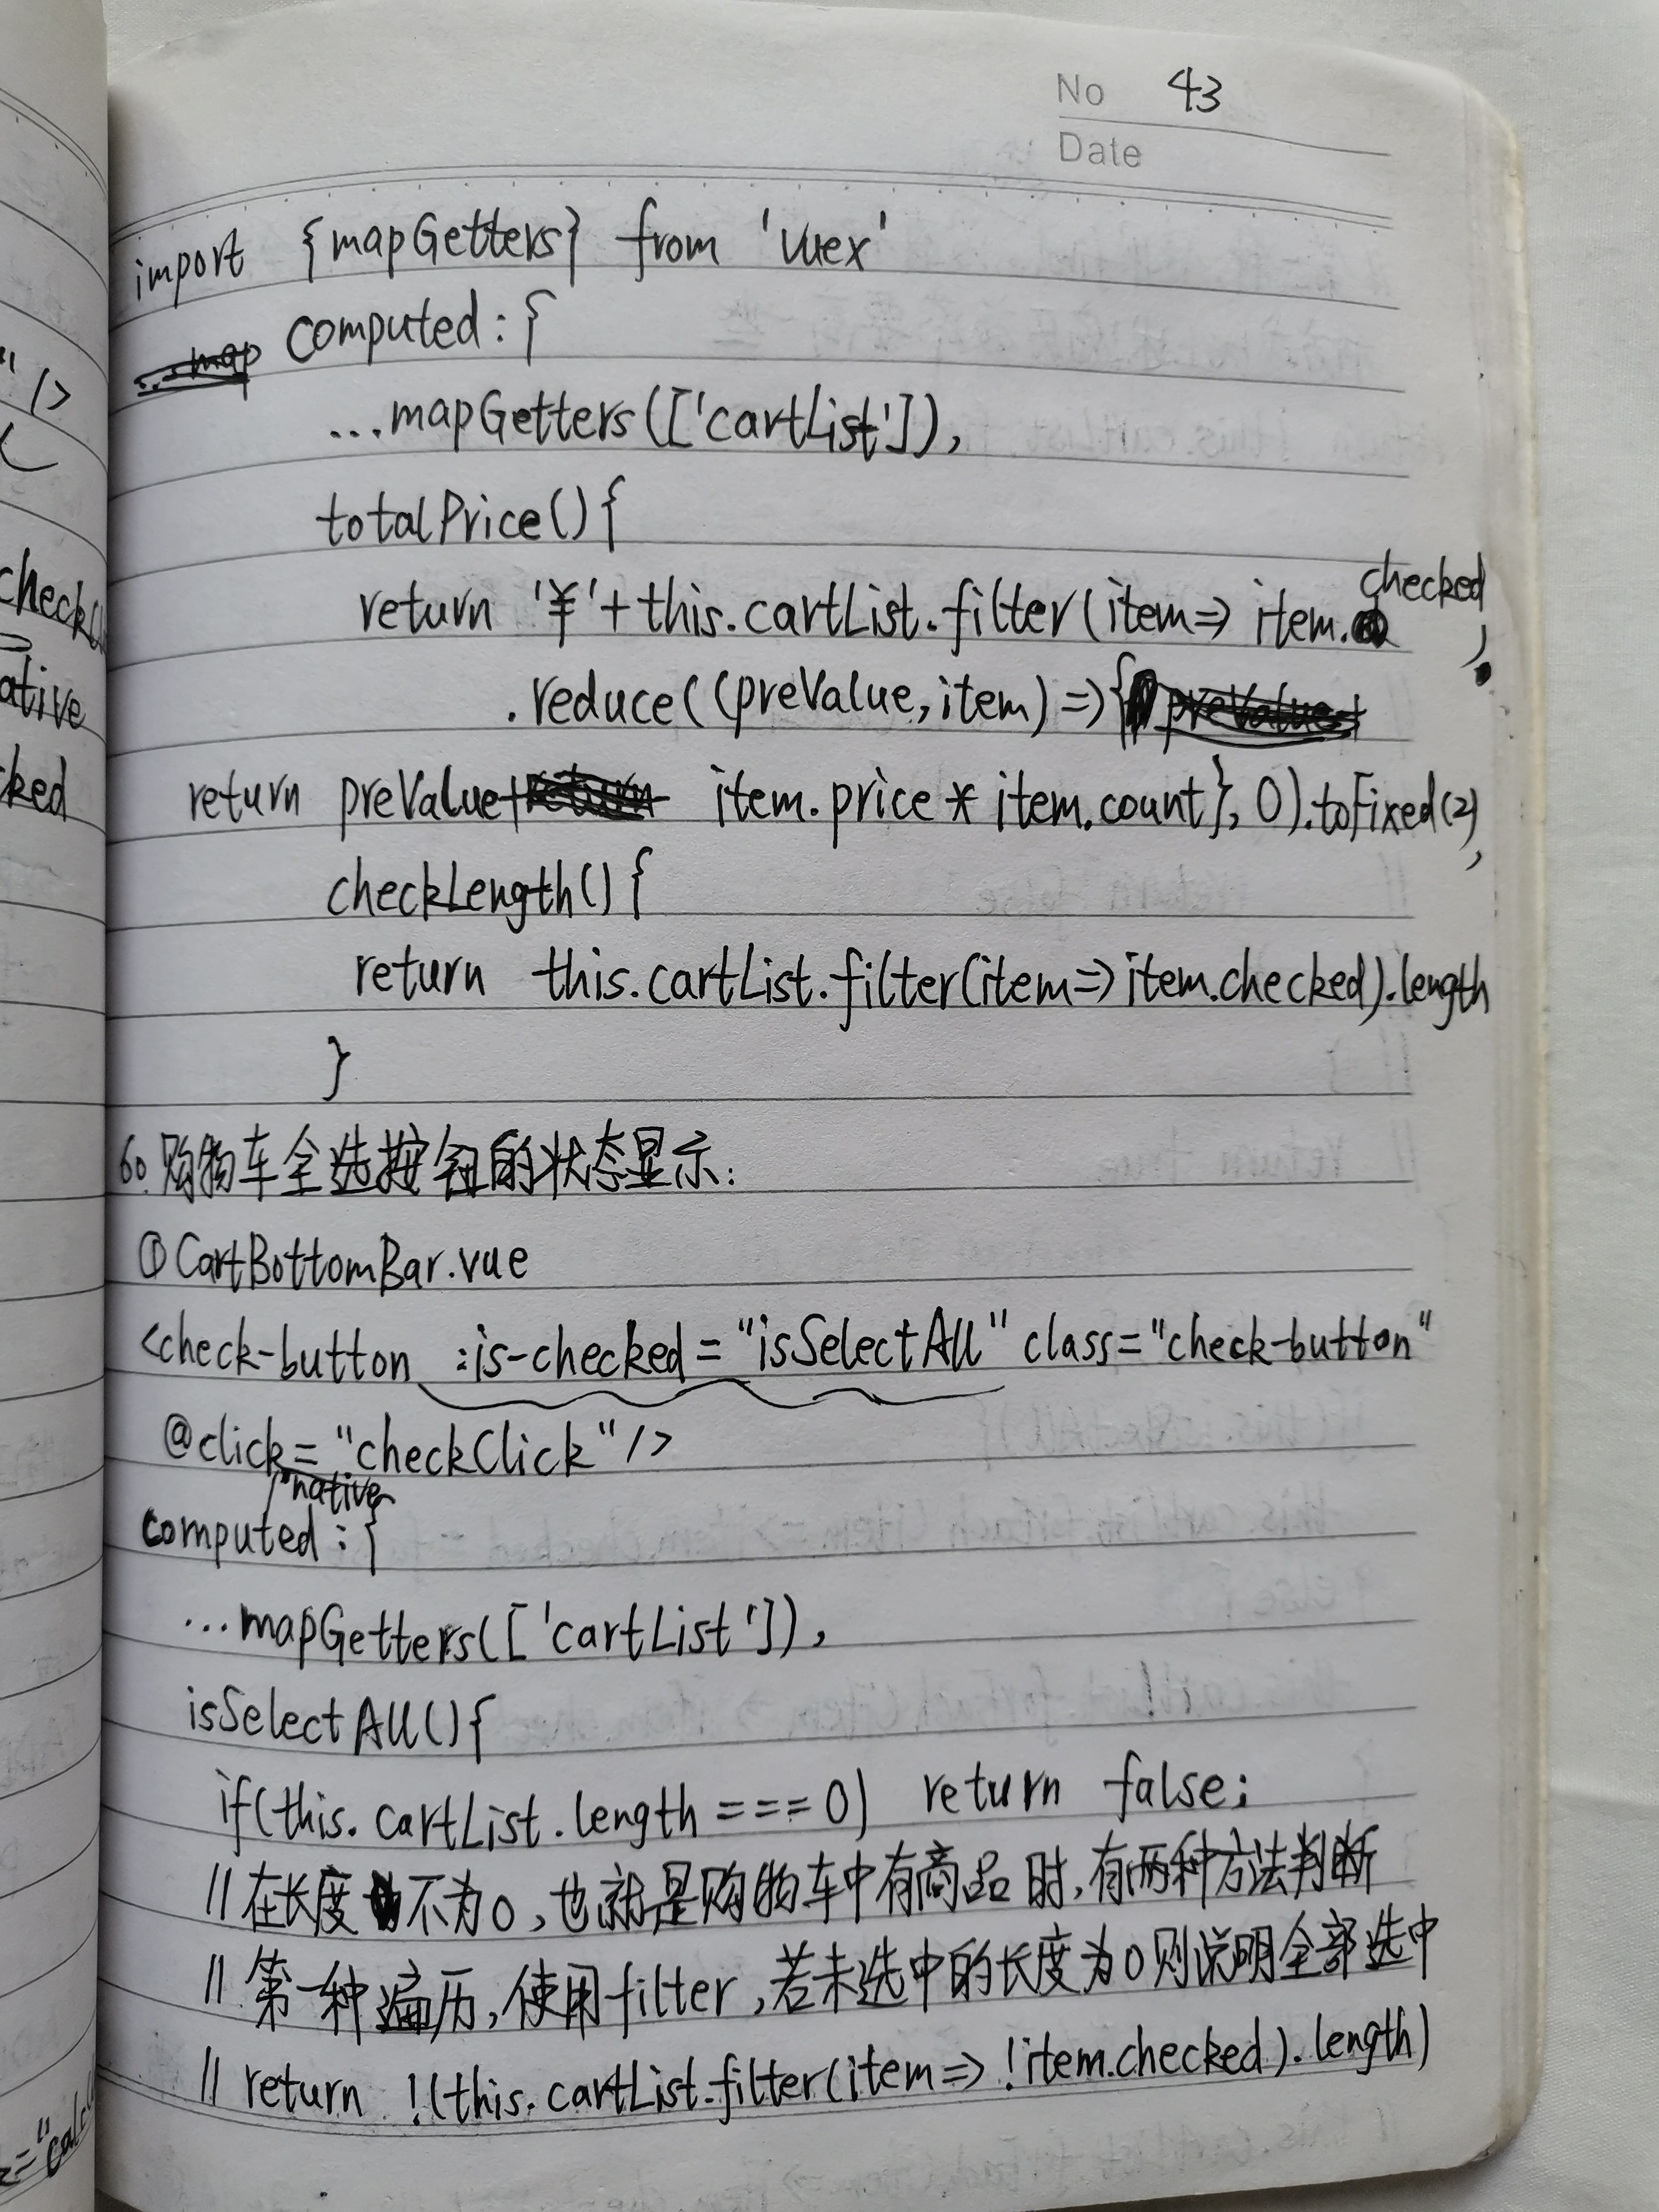 No 43
Date
import {mapGetters} from 'vuex'
computed:{
...mapGetters(['cartList']),
totalPrice(){
return '¥'+this.cartList.filter(item=> item.checked)
.reduce((preValue,item)=>{
return preValue+ item.price * item.count}, 0).toFixed(2),
checkLength(){
return this.cartList.filter(item=>item.checked).length
}
60.购物车全选按钮的状态显示:
①CartBottomBar.vue
<check-button :is-checked="isSelectAll" class="check-button"
@click.native="checkClick"/>
computed:{
...mapGetters(['cartList']),
isSelectAll(){
if(this.cartList.length===0) return false;
//在长度不为0,也就是购物车中有商品时,有两种方法判断
//第一种遍历,使用filter,若未选中的长度为0则说明全部选中
//return !(this.cartList.filter(item=> !item.checked).length)
"/>
ative
ked